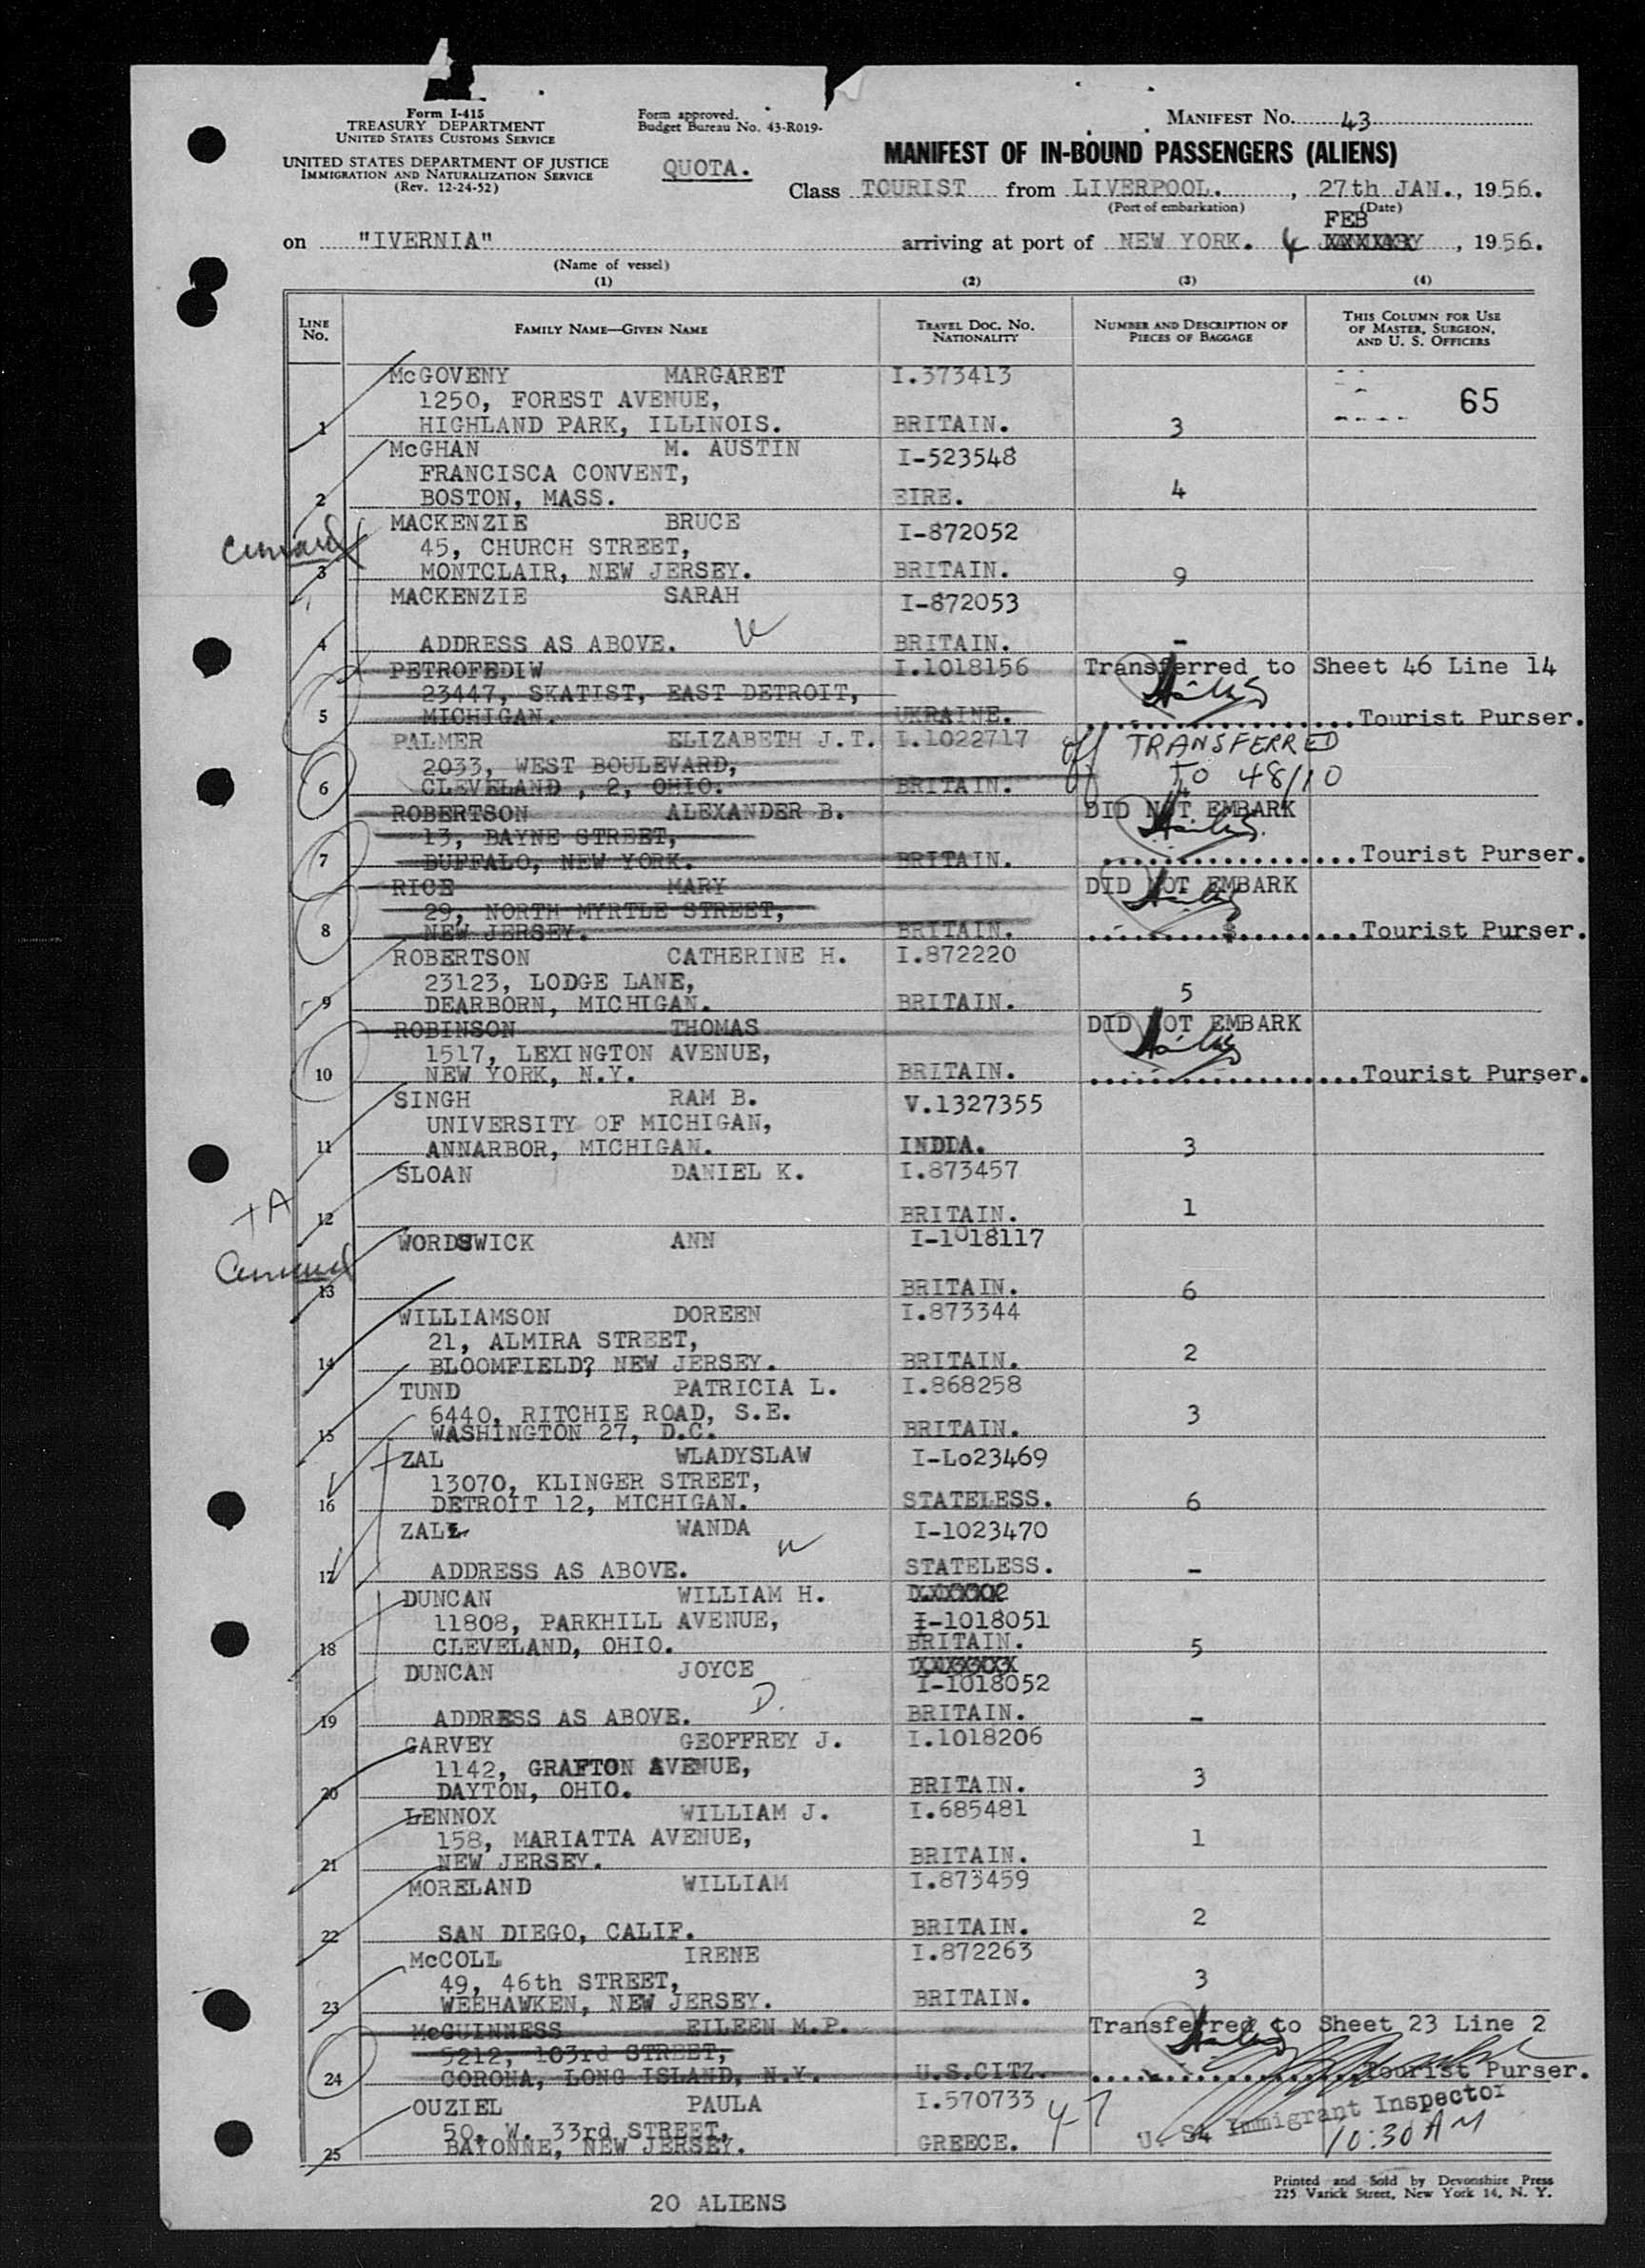 Form I-415
TREASURY DEPARTMENT
UNITED STATES CUSTOMS SERVICE
UNITED STATES DEPARTMENT OF JUSTICE
IMMIGRATION AND NATURALIZATION SERVICE
(Rev. 12-24-52)
Form approved.
Budget Bureau No. 43-R019-
QUOTA.
MANIFEST NO. 43
MANIFEST OF IN-BOUND PASSENGERS (ALIENS)
Class TOURIST from LIVERPOOL. , 27th JAN., 1956.
(Port of embarkation) (Date)
FEB
on "IVERNIA" arriving at port of NEW YORK. 4 , 1956.
(Name of vessel)
(1) (2) (3) (4)
LINE NO. FAMILY NAME—GIVEN NAME TRAVEL DOC. NO. NATIONALITY NUMBER AND DESCRIPTION OF PIECES OF BAGGAGE THIS COLUMN FOR USE OF MASTER, SURGEON, AND U. S. OFFICERS
McGOVENY MARGARET I.373413
1250, FOREST AVENUE, 65
1 HIGHLAND PARK, ILLINOIS. BRITAIN. 3
McGHAN M. AUSTIN I-523548
FRANCISCA CONVENT,
2 BOSTON, MASS. EIRE. 4
MACKENZIE BRUCE I-872052
Cunard 45, CHURCH STREET,
3 MONTCLAIR, NEW JERSEY. BRITAIN. 9
MACKENZIE SARAH I-872053
4 ADDRESS AS ABOVE. BRITAIN. -
PETROFEDIW I.1018156 Transferred to Sheet 46 Line 14
23447, SKATIST, EAST DETROIT,
5 MICHIGAN. UKRAINE. Tourist Purser.
PALMER ELIZABETH J.T. I.1022717 off TRANSFERRED
2033, WEST BOULEVARD, TO 48/10
6 CLEVELAND , 2, OHIO. BRITAIN.
ROBERTSON ALEXANDER B. DID NOT EMBARK
13, BAYNE STREET,
7 BUFFALO, NEW YORK. BRITAIN. Tourist Purser.
RICE MARY DID NOT EMBARK
29, NORTH MYRTLE STREET,
8 NEW JERSEY. BRITAIN. Tourist Purser.
ROBERTSON CATHERINE H. I.872220
23123, LODGE LANE,
9 DEARBORN, MICHIGAN. BRITAIN. 5
ROBINSON THOMAS DID NOT EMBARK
1517, LEXINGTON AVENUE,
10 NEW YORK, N.Y. BRITAIN. Tourist Purser.
SINGH RAM B. V.1327355
UNIVERSITY OF MICHIGAN,
11 ANNARBOR, MICHIGAN. INDIA. 3
SLOAN DANIEL K. I.873457
12 BRITAIN. 1
WORDSWICK ANN I-1018117
Cunard
13 BRITAIN. 6
WILLIAMSON DOREEN I.873344
21, ALMIRA STREET,
14 BLOOMFIELD? NEW JERSEY. BRITAIN. 2
TUND PATRICIA L. I.868258
6440, RITCHIE ROAD, S.E.
15 WASHINGTON 27, D.C. BRITAIN. 3
ZAL WLADYSLAW I-Lo23469
13070, KLINGER STREET,
16 DETROIT 12, MICHIGAN. STATELESS. 6
ZAL WANDA I-1023470
17 ADDRESS AS ABOVE. STATELESS. -
DUNCAN WILLIAM H.
11808, PARKHILL AVENUE, I-1018051
18 CLEVELAND, OHIO. BRITAIN. 5
DUNCAN JOYCE
I-1018052
19 ADDRESS AS ABOVE. D. BRITAIN. -
GARVEY GEOFFREY J. I.1018206
1142, GRAFTON AVENUE,
20 DAYTON, OHIO. BRITAIN. 3
LENNOX WILLIAM J. I.685481
158, MARIATTA AVENUE,
21 NEW JERSEY. BRITAIN. 1
MORELAND WILLIAM I.873459
22 SAN DIEGO, CALIF. BRITAIN. 2
McCOLL IRENE I.872263
49, 46th STREET,
23 WEEHAWKEN, NEW JERSEY. BRITAIN. 3
McGUINNESS EILEEN M.P. Transferred to Sheet 23 Line 2
5212, 103rd STREET,
24 CORONA, LONG ISLAND, N.Y. U.S.CITZ. Tourist Purser.
OUZIEL PAULA I.570733 47
50, W. 33rd STREET, U. S. Immigrant Inspector
25 BAYONNE, NEW JERSEY. GREECE. 4 10:30 AM
Printed and Sold by Devonshire Press
225 Varick Street, New York 14, N. Y.
20 ALIENS